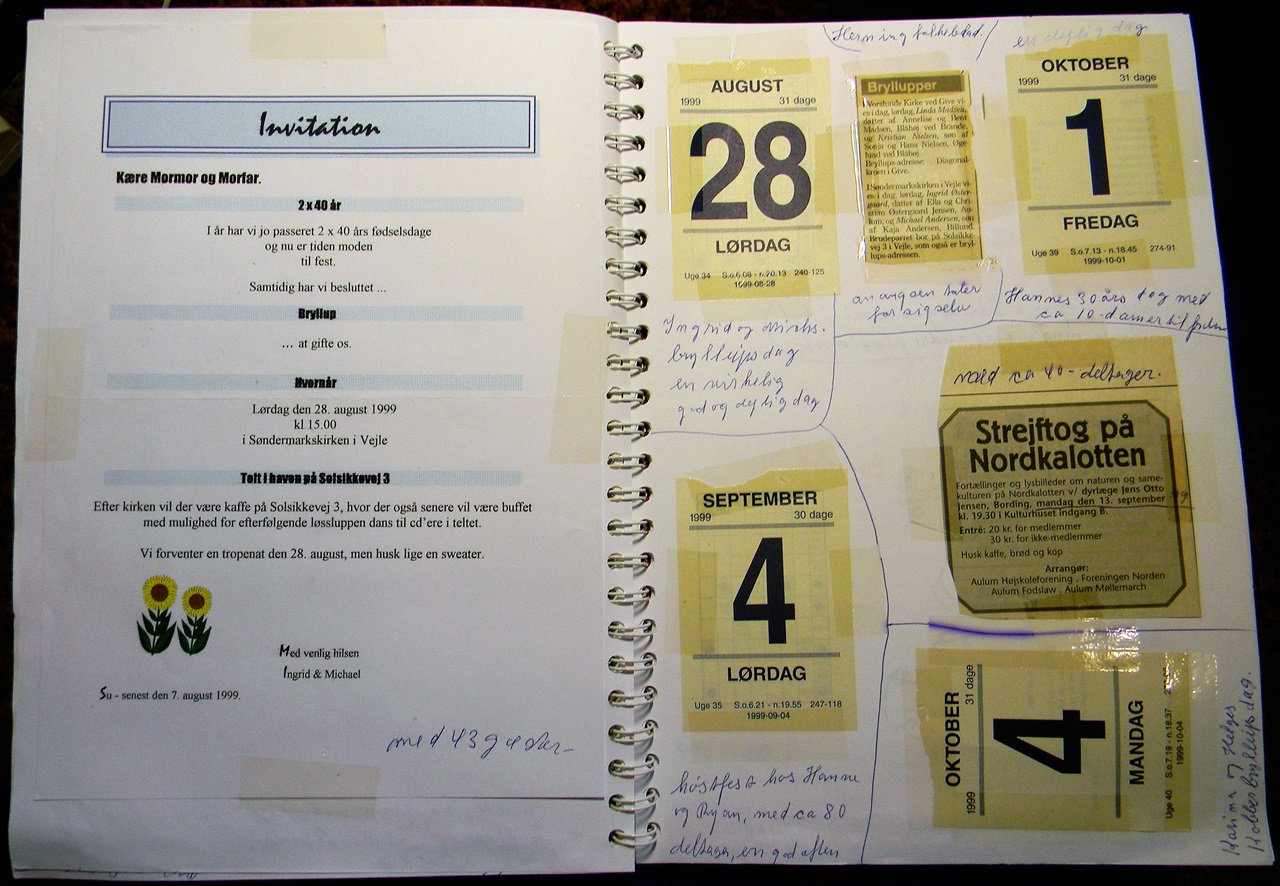 Invitation
Kære Mormor og Morfar.
2 x 40 år
I år har vi jo passeret 2 x 40 års fødselsdage
og nu er tiden moden
til fest.
Samtidig har vi besluttet ...
Bryllup
... at gifte os.
Hvornår
Lørdag den 28. august 1999
kl 15.00
i Søndermarkskirken i Vejle
Telt i haven på Solsikkevej 3
Efter kirken vil der være kaffe på Solsikkevej 3, hvor der også senere vil være buffet
med mulighed for efterfølgende løssluppen dans til cd'ere i teltet.
Vi forventer en tropenat den 28. august, men husk lige en sweater.
Med venlig hilsen
Ingrid & Michael
Su - senest den 7. august 1999.
med 43 gæster
AUGUST
1999 31 dage
28
LØRDAG
Uge 34 S.o.6.08 - n.20.13 240-125
1999-08-28
Ingrid og
bryllups dag
en virkelig
god og dejlig dag
Herning
Bryllupper
Vorslunde Kirke ved Give vi-
es i dag, lørdag, Linda Madsen,
datter af Annelise og Bent
Madsen, Blåhøj ved Brande,
og Kristian Nielsen, søn af
Sonja og Hans Nielsen, Øge-
lund ved Blåhøj.
Bryllups-adresse: Diagonal-
kroen i Give.
I Søndermarkskirken i Vejle vi-
es i dag, lørdag, Ingrid Øster-
gaard, datter af Ella og Chri-
stian Østergaard Jensen, Au-
lum, og Michael Andersen, søn
af Kaja Andersen, Billund.
Brudeparret bor på Solsikke-
vej 3 i Vejle, som også er bryl-
lups-adressen.
annoncen taler
for sig selv
en dejlig dag
OKTOBER
1999 31 dage
1
FREDAG
Uge 39 S.o.7.13 - n.18.45 274-91
1999-10-01
Hannes 30 års dag med
ca 10 damer til
med ca 40 - deltager.
Strejftog på
Nordkalotten
Fortællinger og lysbilleder om naturen og same-
kulturen på Nordkalotten v/ dyrlæge Jens Otto
Jensen, Bording, mandag den 13. september 99
kl. 19.30 i Kulturhuset indgang B.
Entré: 20 kr. for medlemmer
30 kr. for ikke-medlemmer
Husk kaffe, brød og kop
Arrangør:
Aulum Højskoleforening . Foreningen Norden
Aulum Fodslaw . Aulum Møllemarch
SEPTEMBER
1999 30 dage
4
LØRDAG
Uge 35 S.o.6.21 - n.19.55 247-118
1999-09-04
høstfest hos Hanne
og Ryan, med ca 80
deltager, en god aften
OKTOBER
1999 31 dage
4
MANDAG
Uge 40 S.o.7.19 - n.18.37
1999-10-04
Karina og Helges
Kobberbryllups dag.